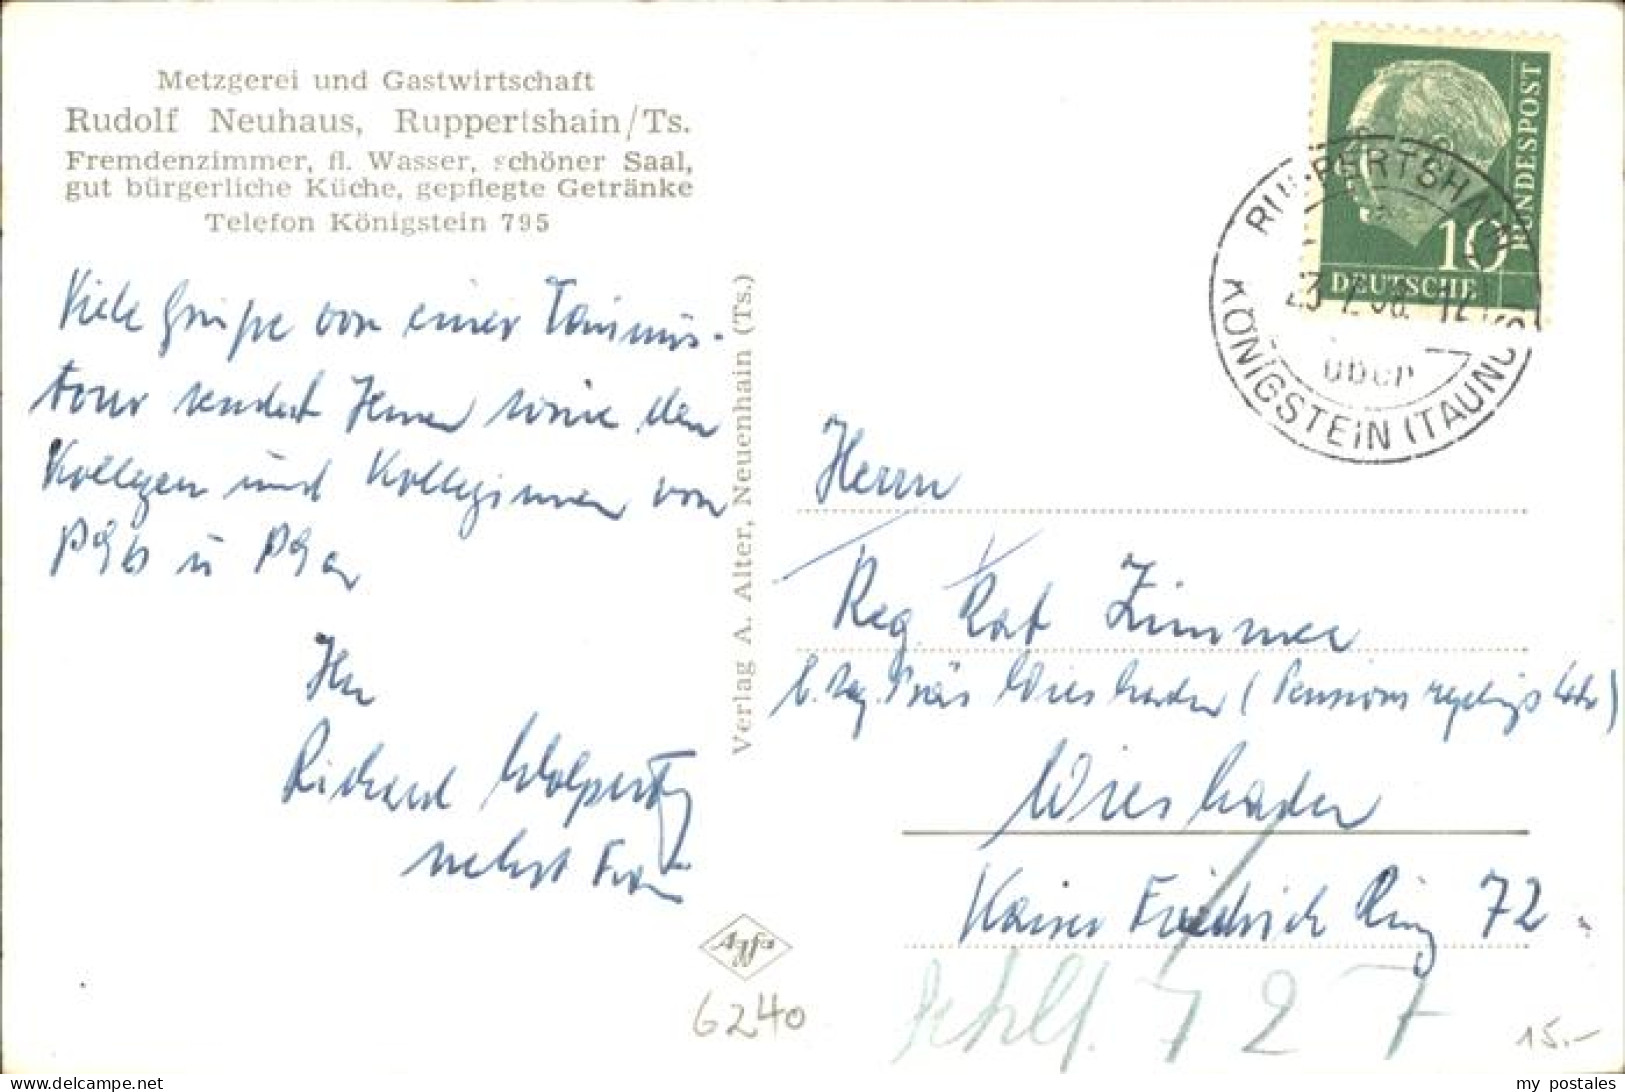 Metzgerei und Gastwirtschaft
Rudolf Neuhaus, Ruppertshain/Ts.
Fremdenzimmer, fl. Wasser, schöner Saal,
gut bürgerliche Küche, gepflegte Getränke
Telefon Königstein 795
Viele Grüße von einer Taunus-
tour sendet Ihnen sowie den
Kollegen und Kolleginnen von
Ihr
Richard Wolpert
nebst Frau
Verlag A. Alter, Neuenhain (Ts.)
Agfa
6240
BUNDESPOST
10
DEUTSCHE
RUPPERTSHAIN
über
KÖNIGSTEIN (TAUNUS)
Herrn
Reg. Rat Zimmer
b. Reg. Präs Wiesbaden (Pensionsregelungsbeh.)
Wiesbaden
Kaiser Friedrich Ring 72
727
15.-
my postales